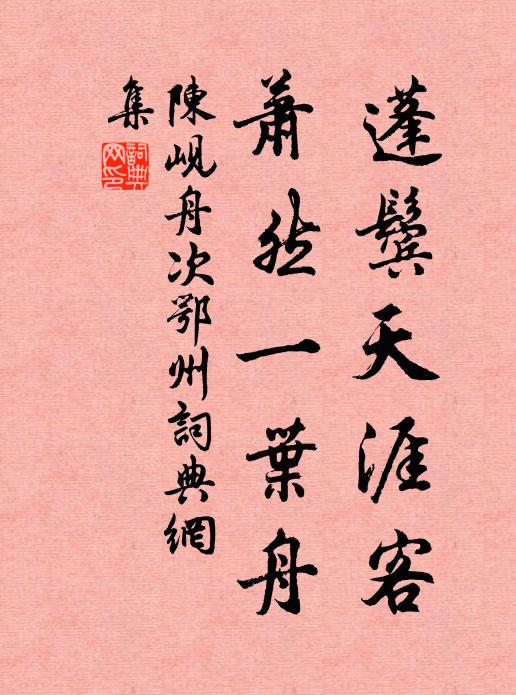 蓬鬢天涯客
蕭然一葉舟
陳峴舟次鄂州詞典網
集
詞典
網印